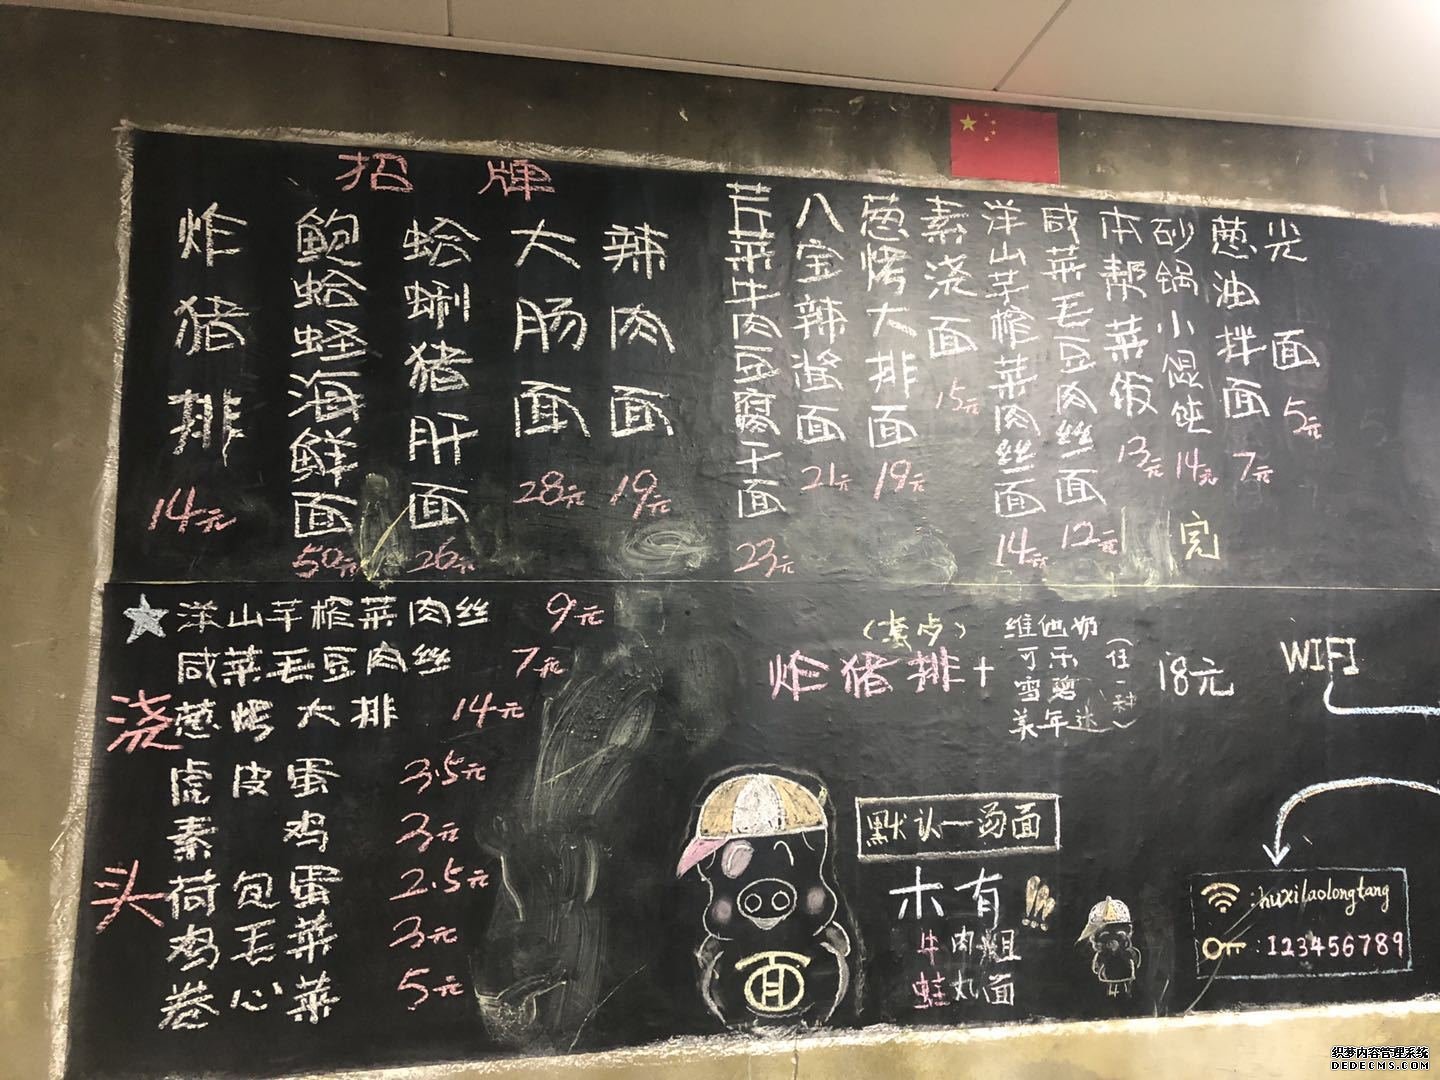 招牌
炸猪排 14元
鲍蛤蛏海鲜面 50元
蛤蜊猪肝面 26元
大肠面 28元
辣肉面 19元
芹菜牛肉豆腐干面 23元
八宝辣酱面 21元
葱烤大排面 19元
素浇面 15元
洋山芋榨菜肉丝面 14元
咸菜毛豆肉丝面 12元
本帮菜饭 13元
砂锅小馄饨 14元
完
葱油拌面 7元
光面 5元
浇头
洋山芋榨菜肉丝 9元
咸菜毛豆肉丝 7元
葱烤大排 14元
虎皮蛋 3.5元
素鸡 3元
荷包蛋 2.5元
鸡毛菜 3元
卷心菜 5元
炸猪排+
维他奶
可乐
雪碧
美年达
(任一种)
18元
WIFI
面
默认一汤面
木有!!!
牛肉
蛙丸面
:huxilaolongtang
:123456789
织梦内容管理系统
DEDECMS.COM